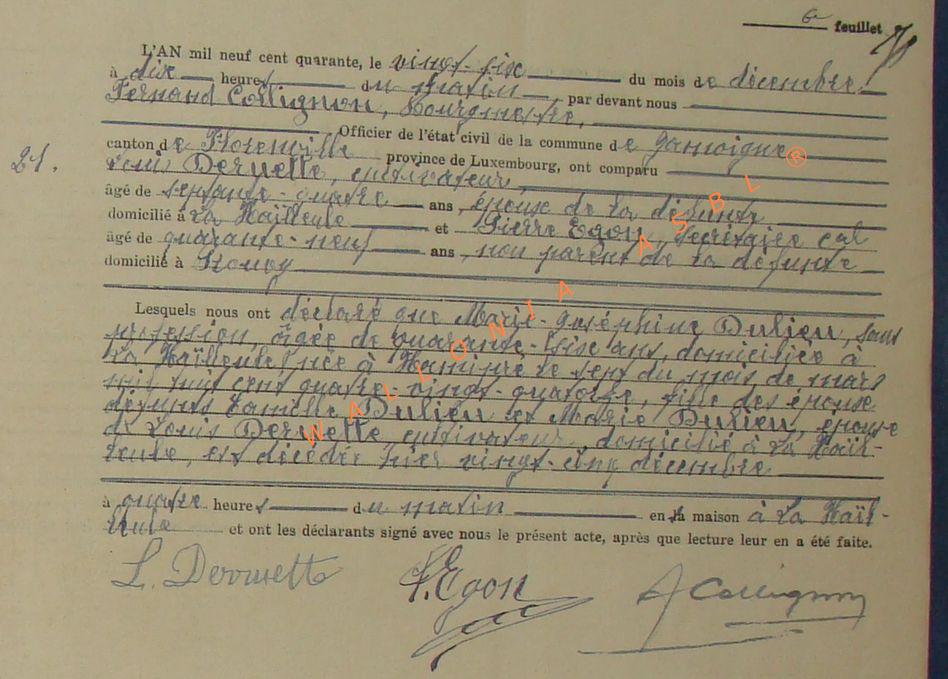 6e feuillet
L'AN mil neuf cent quarante, le vingt-six du mois de décembre
à dix heures du matin, par devant nous
Fernand Collignon, Bourgmestre,
Officier de l'état civil de la commune de Jamoigne
21.
canton de Florenville province de Luxembourg, ont comparu
Louis Deruette, cultivateur,
âgé de septante-quatre ans, époux de la défunte
domicilié à La Haïlleule et Pierre Egon, secrétaire cal
âgé de quarante-neuf ans, non parent de la défunte
domicilié à
Lesquels nous ont déclaré que Marie-Joséphine Dulieu, sans
profession, âgée de quarante-six ans, domiciliée à
La Haïlleule, née à Hamipré le sept du mois de mars
mil huit cent quatre-vingt-quatorze, fille des époux
défunts Camille Dulieu et Marie Dulieu, épouse
de Louis Deruette cultivateur, domicilié à La Haïl-
leule, est décédée hier vingt-cinq décembre
à quatre heures du matin en sa maison à La Haïl-
leule et ont les déclarants signé avec nous le présent acte, après que lecture leur en a été faite.
L. Deruette P. Egon F Collignon
WALLONIA ASBL ®